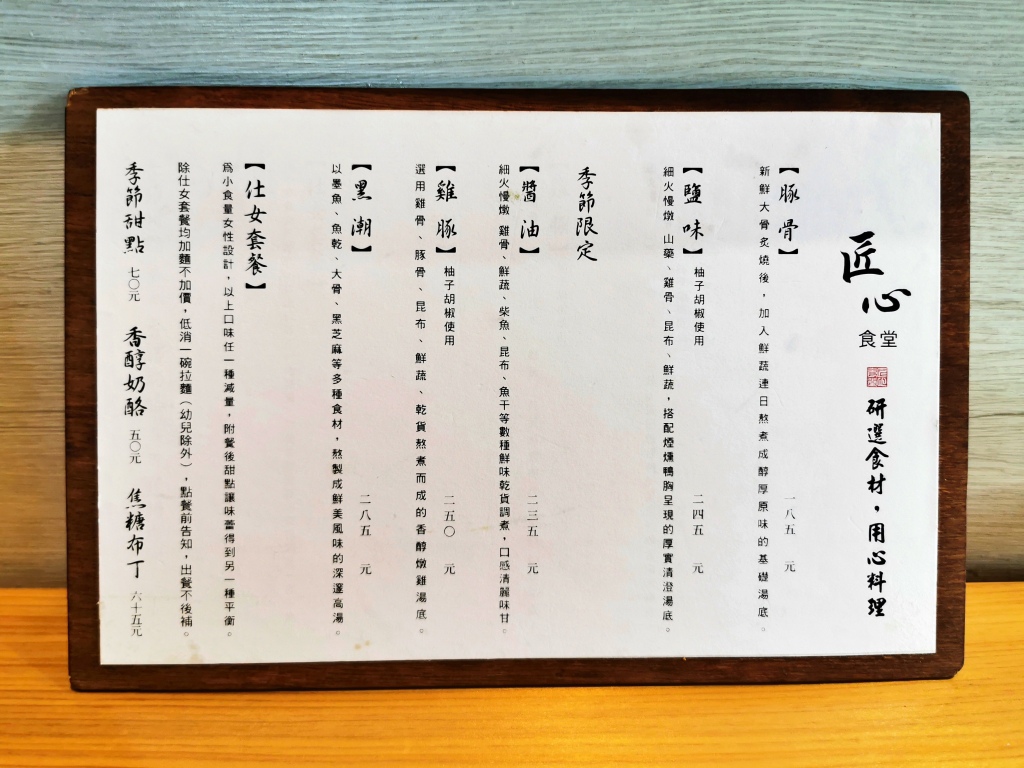 匠心
食堂
研選食材，用心料理
【豚骨】 一八五 元
新鮮大骨炙燒後，加入鮮蔬連日熬煮成醇厚原味的基礎湯底。
【鹽味】柚子胡椒使用 二四五 元
細火慢燉 山藥、雞骨、昆布、鮮蔬，搭配煙燻鴨胸呈現的厚實清澄湯底。
季節限定
【醬油】 二三五 元
細火慢燉 雞骨、鮮蔬、柴魚、昆布、魚干等數種鮮味乾貨調煮，口感清麗味甘。
【雞豚】柚子胡椒使用 二五〇 元
選用雞骨、豚骨、昆布、鮮蔬、乾貨熬煮而成的香醇燉雞湯底。
【黑潮】 二八五 元
以墨魚、魚乾、大骨、黑芝麻等多種食材，熬製成鮮美風味的深邃高湯。
【仕女套餐】
為小食量女性設計，以上口味任一種減量，附餐後甜點讓味蕾得到另一種平衡。
除仕女套餐均加麵不加價，低消一碗拉麵（幼兒除外），點餐前告知，出餐不後補。
季節甜點 七〇元 香醇奶酪 五〇元 焦糖布丁 六十五元